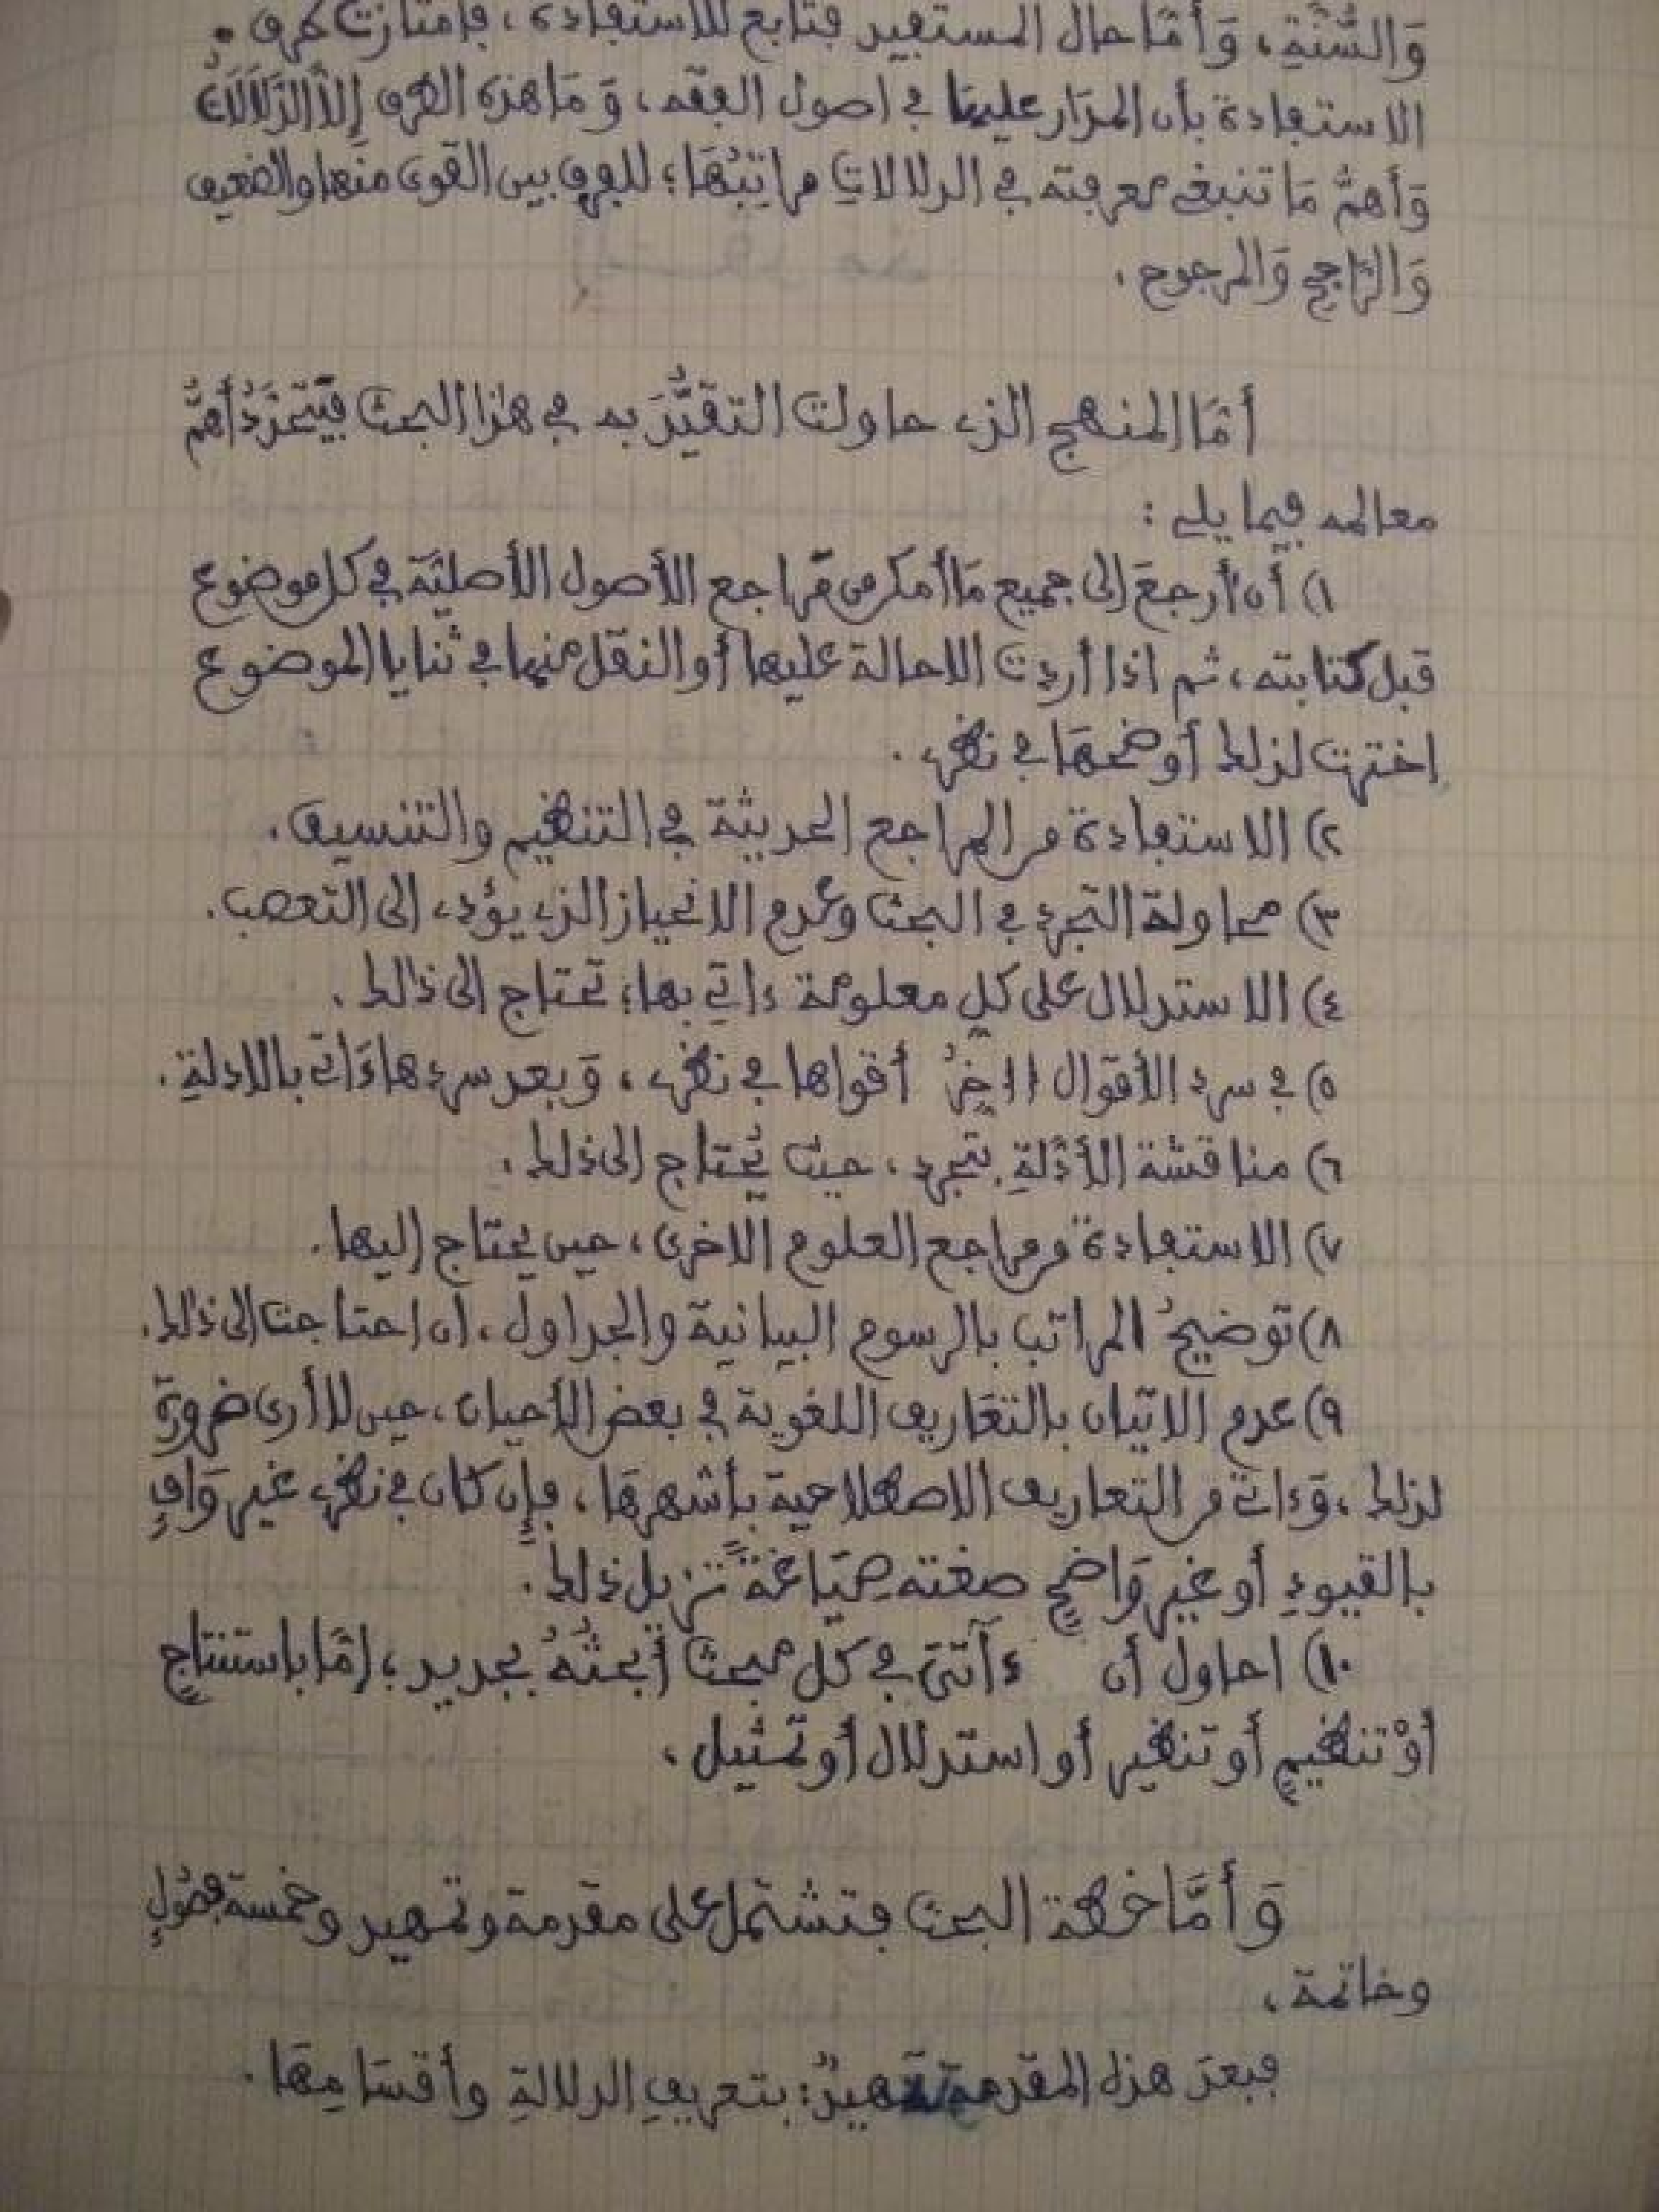 وَالسُّنَّةِ، وَأَمَّا حال المستفيد فتابع للاستفادة، فامتازت طرق
الاستفادة بأن المدَار عليها في اصول الفقه، وَمَا هذه الطرق إِلاَّ الدَّلاَلاَتُ
وَأهمُّ مَا تنبغي معرفته في الدلالاتِ مراتبُهَا؛ للفرق بين القوى منها والضعيف
وَالرَّاجحِ وَالمرجوح.
أمَّا المنهج الذي حاولت التقيُّدَ به في هذا البحث فيَتحَدَّدُ أهمُّ
معالمه فيما يلي :
١) أن أرجعَ إلى جميع مَا أمكن من مَراجع الأصول الأصليَّة في كل موضوع
قبل كتابته، ثم اذا أردت الاحالة عليها أو النقل منها في ثنايا الموضوع
اخترت لذلك أوضحهَا في نظري.
٢) الاستفادة من المراجع الحديثة في التنظيم والتنسيق.
٣) محاولة التجرد في البحث وعدم الانحياز الذي يؤدي الى التعصب.
٤) الاستدلال على كل معلومة ءاتي بها؛ تحتاج الى ذالك.
٥) في سرد الأقوال أقواها في نظري، وَبعد سردها ءَاتي بالادلةِ.
٦) مناقشة الأدَّلةِ بتجرد، حيث يُحتاج إلى ذلك.
٧) الاستفادة من مراجع العلوم الاخرى، حين يحتاج إليها.
٨) توضيحُ المراتب بالرسوم البيانية والجداول، ان احتاجت الى ذالك.
٩) عدم الاتيان بالتعَاريف اللغوية في بعض الأحيان، حين لا أرى ضرورة
لذلك، وَءاتي من التعاريف الاصطلاحية بأشهرهَا، فإن كان في نظري غير وَافٍ
بالقيودِ أو غير وَاضحٍ صغته صِيَاغَةً تزيل ذلك.
١٠) احاول أن ءَاتيَ في كل مبحث أبحثُهُ بجديد؛ إمَّا باستنتاجٍ
أوْ تنظيمٍ أو تنظيرٍ أو استدلال أو تمثيل.
وَأمَّا خطة البحث فتشتمل على مقدمة وتمهيد وخمسة فصُولٍ
وخاتمة.
فبعدَ هذه المقدمة تمهيدٌ: بتعريفِ الدلالةِ وأقسَامِهَا.